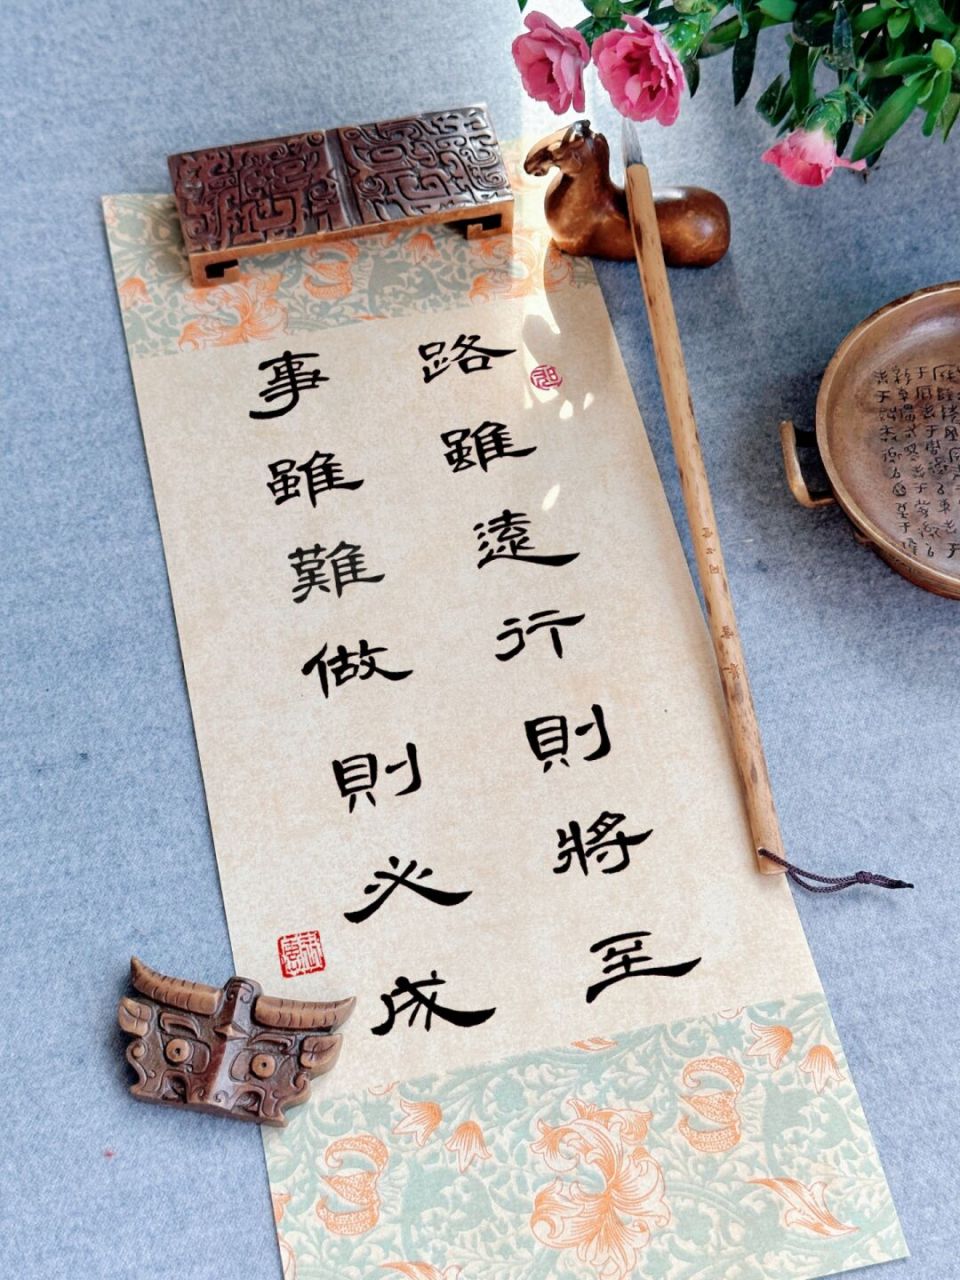 路雖遠行則將至
事雖難做則必成